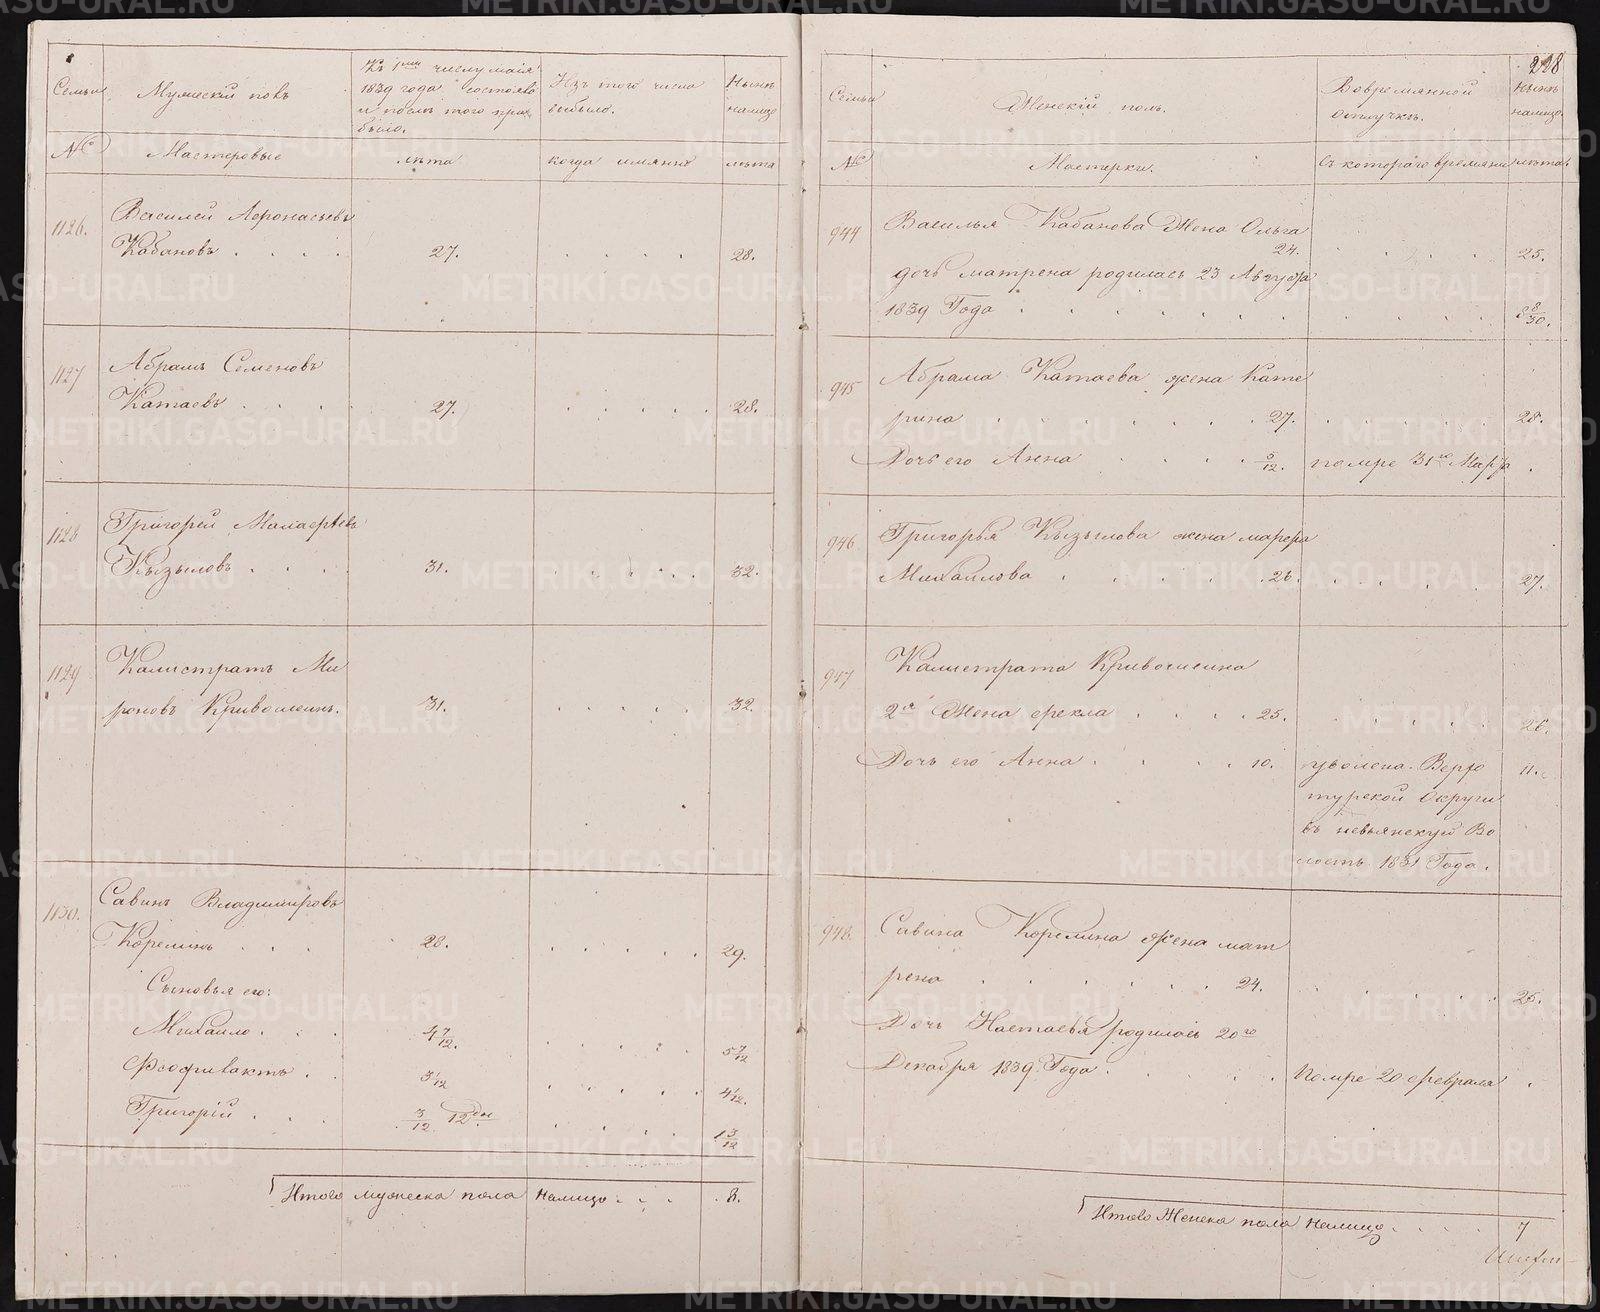 Семьи
Мужескій полъ
Къ 1му числу маія
1839 года состояло
и послѣ того при
было.
Изъ того числа
выбыло.
Нынѣ
налицо
№
Мастеровые
лѣта
когда имянно
лѣта
1126.
Василей Афонасьевъ
Кабановъ . . . . 27. . . . . . 28.
1127
Абрамъ Семеновъ
Катаевъ . . . . 27. . . . . . 28.
1128
Григорей Малафѣевъ
Кызыловъ . . . . 31. . . . . . 32.
1129
Калистратъ Ми
роновъ Кривошеинъ. 31. . . . . . 32.
1130.
Савинъ Владимировъ
Корелинъ . . . 28. . . . . . 29.
Сыновья его:
Михайло . . . 4 7/12. . . . . . 5 7/12
Феофилактъ . . 3 1/12 . . . . 4 1/12.
Григорій . . . 3/12 12 дн . . . . 1 3/12
Итого мужеска пола налицо . . . 8.
218
Семьи
Женскій полъ.
Вовремянной
отлучкѣ.
Нынѣ
налицо.
№
Мастерки.
Съ котораго времяни
лѣта.
944
Василья Кабанова Жена Ольга
24. . . . . 25.
дочь матрена родилась 23 Августа
1839 Года . . . . . . . . 8/30.
945
Абрама Катаева жена Кате
рина . . . . . . 27. . . . . . 28.
Дочь его Анна . . . . 5/12. помре 31го Марта .
946
Григорья Кызылова жена марфа
Михайлова . . . . . 26. . . . . . 27.
947
Калистрата Кривошеина
2я Жена фекла . . . . 25. . . . . . 26.
Дочь его Анна . . . . 10. уволена Верхо 11.
турской Округи
въ невьянскую Во
лость 1831 Года.
948.
Савина Корелина жена мат
рена . . . . . . 24. . . . . . 25.
Дочь Настасья родилась 20го
Декабря 1839 Года . . . . . Помре 20 февраля .
Итого Женска пола налицо . . . . 7